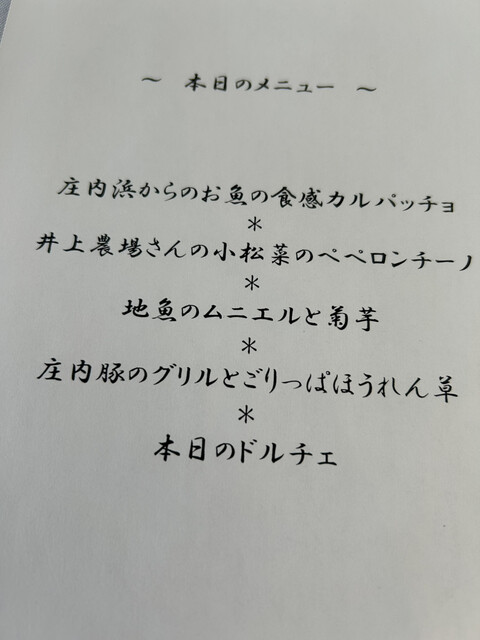 ～ 本日のメニュー ～
庄内浜からのお魚の食感カルパッチョ
＊
井上農場さんの小松菜のペペロンチーノ
＊
地魚のムニエルと菊芋
＊
庄内豚のグリルとごりっぱほうれん草
＊
本日のドルチェ